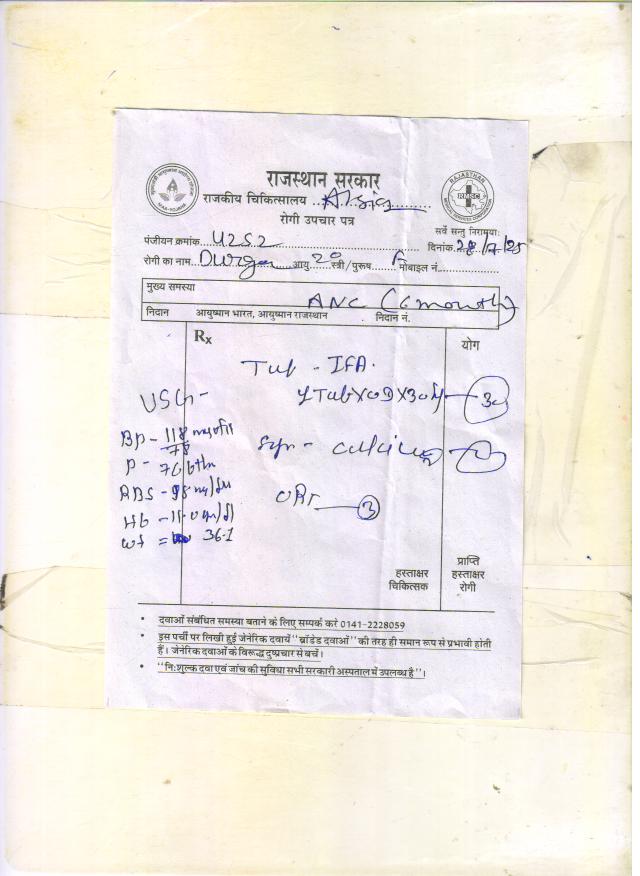 राजस्थान सरकार
राजकीय चिकित्सालय
रोगी उपचार पत्र
RAJASTHAN
RMSC
सर्वे सन्तु निरामयाः
पंजीयन क्रमांक 4252 दिनांक 28/7/25
रोगी का नाम Durga आयु 20 स्त्री/पुरूष F मोबाइल नं.
मुख्य समस्या ANC (6 month)
निदान आयुष्मान भारत, आयुष्मान राजस्थान निदान नं.
Rx योग
Tab - IFA.
1Tab X OD X 30 30
USG -
BP - 118/78
Syp - calcium
P - 76 b/m
RBS - 98 mg/dl
ORS 3
Hb - 11.0 gm/dl
wt = 36.1
हस्ताक्षर चिकित्सक
प्राप्ति हस्ताक्षर रोगी
• दवाओं संबंधित समस्या बताने के लिए सम्पर्क करे 0141-2228059
• इस पर्ची पर लिखी हुई जेनेरिक दवायें "ब्रांडेड दवाओं" की तरह ही समान रूप से प्रभावी होती
हैं। जेनेरिक दवाओं के विरूद्ध दुष्प्रचार से बचें।
• "नि:शुल्क दवा एवं जाँच की सुविधा सभी सरकारी अस्पताल में उपलब्ध है"।